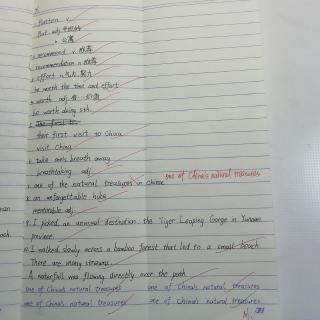 flatten v.
flat adj. 平坦的
n. 公寓
recommend v. 推荐
recommendation n. 推荐
effort n. 气力, 努力
be worth the time and effort
worth adj. 有
be worth doing sth.
The first to
their first visit to China
visit China
take one's breath away
breathtaking adj.
7. one of the natural treasures in Chinese one of China's natural treasures
8. an unforgettable hike
memorable adj.
9. I picked an unusual destination: the Tiger Leaping Gorge in Yunnan
province.
10. I walked slowly across a bamboo forest that led to a small beach
There are many streams.
A waterfall was flowing directly over the path
one of China's natural treasures one of China's natural treasures
one of China's natural treasures one of China's natural treasures